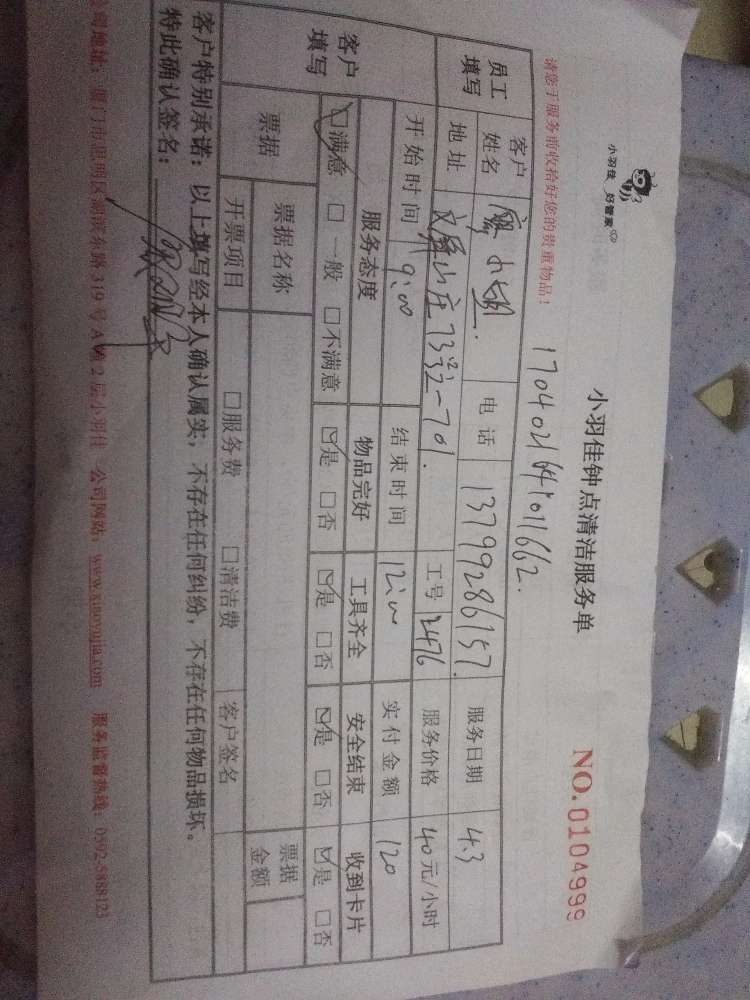 小羽佳 好管家
小羽佳钟点清洁服务单
NO.0104999
请您于服务前收拾好您的贵重物品！
员工填写
客户姓名 小 电话 13799286157 服务日期 4.3
地址 文屏山庄 -701. 工号 2476 服务价格 40元/小时
开始时间 9:00 结束时间 12:00 实付金额 120
客户填写
服务态度 物品完好 工具齐全 安全结束 收到卡片
☑满意 □一般 □不满意 ☑是 □否 ☑是 □否 ☑是 □否 ☑是 □否
票据 票据名称 票据金额
开票项目 □服务费 □清洁费 客户签名
客户特别承诺：以上填写经本人确认属实，不存在任何纠纷，不存在任何物品损坏。
特此确认签名：
公司地址：厦门市思明区湖滨东路319号A 2层小羽佳 公司网站：www.xiaoyujia.com 服务监督热线：0592-5888123